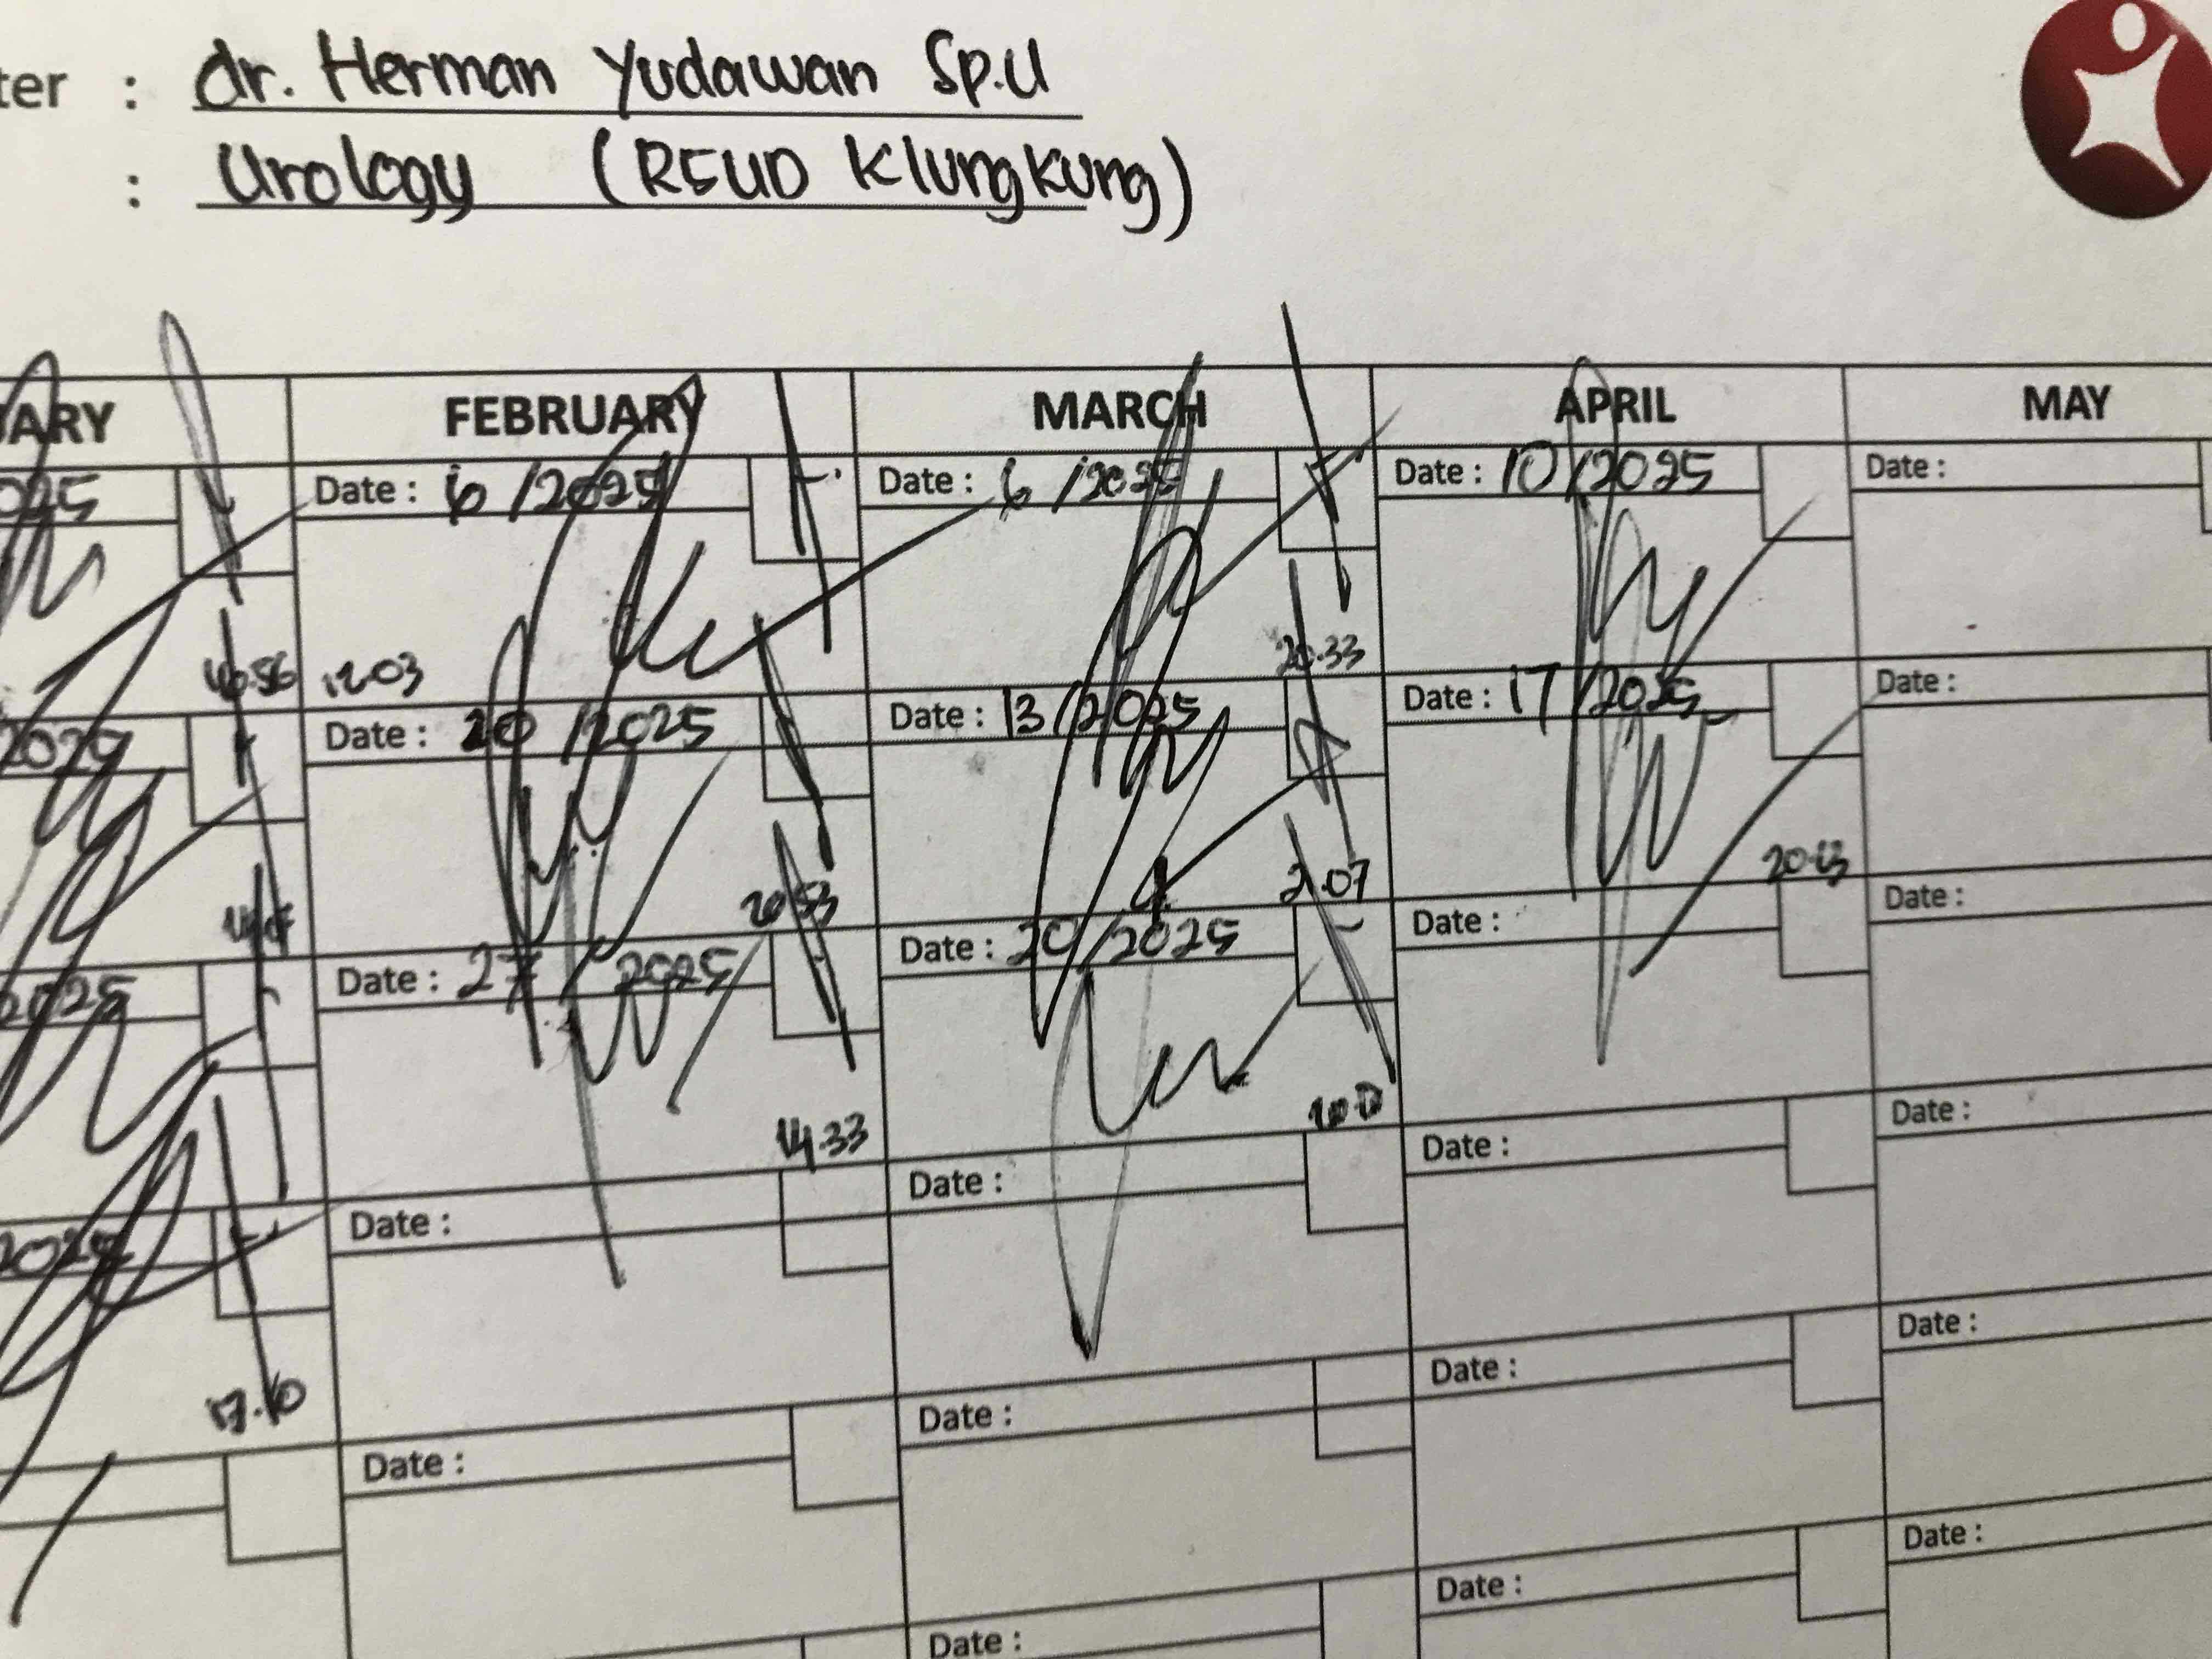 ter : dr. Herman Yudawan Sp.U
: Urology (RSUD Klungkung)
ARY FEBRUARY MARCH APRIL MAY
025 Date : 6 /2025 Date : 6 /2025 Date : 10/2025 Date :
16.56 12.03 20.33
2025 Date : 20 /2025 Date : 13/2025 Date : 17/2025 Date :
20.53
2025 Date : 27 2025 Date : 20/2025 Date : Date :
14.33
2025 Date : Date : Date : Date :
17.10
Date : Date : Date : Date :
Date : Date : Date :